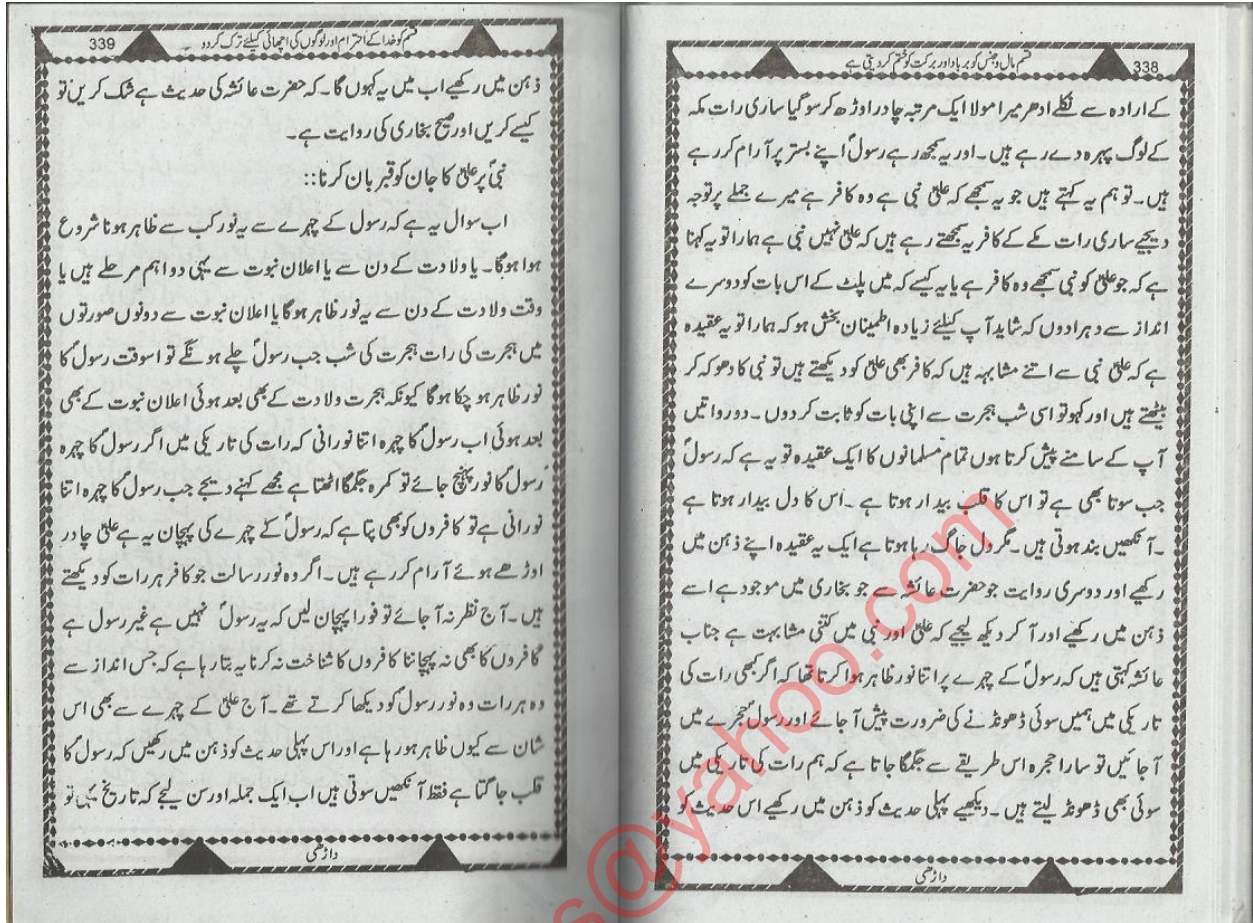 338
قسم مال و جنس کو برباد اور برکت کو ختم کر دیتی ہے
کے ارادہ سے نکلے ادھر میرا مولا ایک مرتبہ چادر اوڑھ کر سو گیا ساری رات مکہ
کے لوگ پہرہ دے رہے ہیں۔ اور یہ سمجھ رہے رسولؐ اپنے بستر پر آرام کر رہے
ہیں۔ تو ہم یہ کہتے ہیں جو یہ سمجھے کہ علیؑ نبی ہے وہ کافر ہے میرے جملے پر توجہ
دیجیے ساری رات مکے کے کافر یہ سمجھتے رہے ہیں کہ علیؑ نہیں نبی ہے ہمارا تو یہ کہنا
ہے کہ جو علیؑ کو نبی سمجھے وہ کافر ہے یا یہ کیسے کہ میں پلٹ کے اس بات کو دوسرے
انداز سے دہرا دوں کہ شاید آپ کیلئے زیادہ اطمینان بخش ہو کہ ہمارا تو یہ عقیدہ
ہے کہ علیؑ نبی سے اتنے مشابہہ ہیں کہ کافر بھی علیؑ کو دیکھتے ہیں تو نبی کا دھوکہ کر
بیٹھتے ہیں اور کہو تو اسی شب ہجرت سے اپنی بات کو ثابت کر دوں۔ دو رواتیں
آپ کے سامنے پیش کرتا ہوں تمام مسلمانوں کا ایک عقیدہ تو یہ ہے کہ رسولؐ
جب سوتا بھی ہے تو اس کا قلب بیدار ہوتا ہے ۔اس کا دل بیدار ہوتا ہے
۔آنکھیں بند ہوتی ہیں۔ مگر دل جاگ رہا ہوتا ہے ایک یہ عقیدہ اپنے ذہن میں
رکھیے اور دوسری روایت جو حضرت عائشہ سے جو بخاری میں موجود ہے اسے
ذہن میں رکھیے اور آ کر دیکھ لیجیے کہ علیؑ اور نبی میں کتنی مشابہت ہے جناب
عائشہ کہتی ہیں کہ رسولؐ کے چہرے پر اتنا نور ظاہر ہوا کرتا تھا کہ اگر کبھی رات کی
تاریکی میں ہمیں سوئی ڈھونڈنے کی ضرورت پیش آ جائے اور رسولؐ حجرے میں
آ جائیں تو سارا حجرہ اس طریقے سے جگمگا جاتا ہے کہ ہم رات کی تاریکی میں
سوئی بھی ڈھونڈ لیتے ہیں ۔ دیکھیے پہلی حدیث کو ذہن میں رکھیے اس حدیث کو
داڑھی
339
قسم کو خدا کے احترام اور لوگوں کی اچھائی کیلئے ترک کر دو
ذہن میں رکھیے اب میں یہ کہوں گا۔ کہ حضرت عائشہ کی حدیث ہے شک کریں تو
کیسے کریں اور صیح بخاری کی روایت ہے۔
نبیؐ پر علیؑ کا جان کو قبر بان کرنا::
اب سوال یہ ہے کہ رسول کے چہرے سے یہ نور کب سے ظاہر ہونا شروع
ہوا ہو گا۔ یا ولادت کے دن سے یا اعلان نبوت سے یہی دو اہم مرحلے ہیں یا
وقت ولادت کے دن سے یہ نور ظاہر ہو گا یا اعلان نبوت سے دونوں صورتوں
میں ہجرت کی رات ہجرت کی شب جب رسولؐ چلے ہونگے تو اسوقت رسولؐ کا
نور ظاہر ہو چکا ہو گا کیونکہ ہجرت ولادت کے بھی بعد ہوئی اعلان نبوت کے بھی
بعد ہوئی اب رسولؐ کا چہرہ اتنا نورانی کہ رات کی تاریکی میں اگر رسولؐ کا چہرہ
رسولؐ کا نور پہنچ جائے تو کمرہ جگمگا اٹھتا ہے مجھے کہنے دیجے جب رسولؐ کا چہرہ اتنا
نورانی ہے تو کافروں کو بھی پتا ہے کہ رسولؐ کے چہرے کی پہچان یہ ہے علیؑ چادر
اوڑھے ہوئے آرام کر رہے ہیں۔ اگر وہ نور رسالت جو کافر ہر رات کو دیکھتے
ہیں۔ آج نظر نہ آ جائے تو فورا پہچان لیں کہ یہ رسولؐ نہیں ہے غیر رسول ہے
کافروں کا بھی نہ پہچاننا کافروں کا شناخت نہ کرنا یہ بتا رہا ہے کہ جس انداز سے
وہ ہر رات وہ نور رسولؐ کو دیکھا کرتے تھے۔ آج علیؑ کے چہرے سے بھی اس
شان سے کیوں ظاہر ہو رہا ہے اور اس پہلی حدیث کو ذہن میں رکھیں کہ رسولؐ کا
قلب جاگتا ہے فقط آنکھیں سوتی ہیں اب ایک جملہ اور سن لیجے کہ تاریخ میں تو
داڑھی
s@yahoo.com